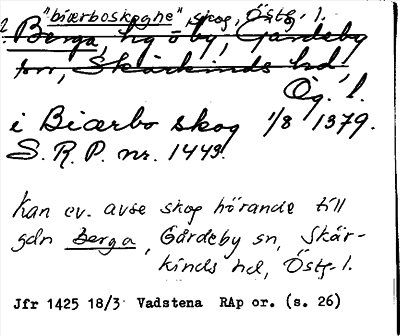 "biærboskoghe", skog, Östg. l.
? Berga, hg o by, Gårdeby
sn, Skärkinds hd.
Ög. l.
i Biærbo skog 1/8 1379.
S. R. P. nr. 1443.
Kan ev. avse skog hörande till
gdn Berga, Gårdeby sn, Skär-
kinds hd, Östg. l.
Jfr 1425 18/3 Vadstena RAp or. (s. 26)